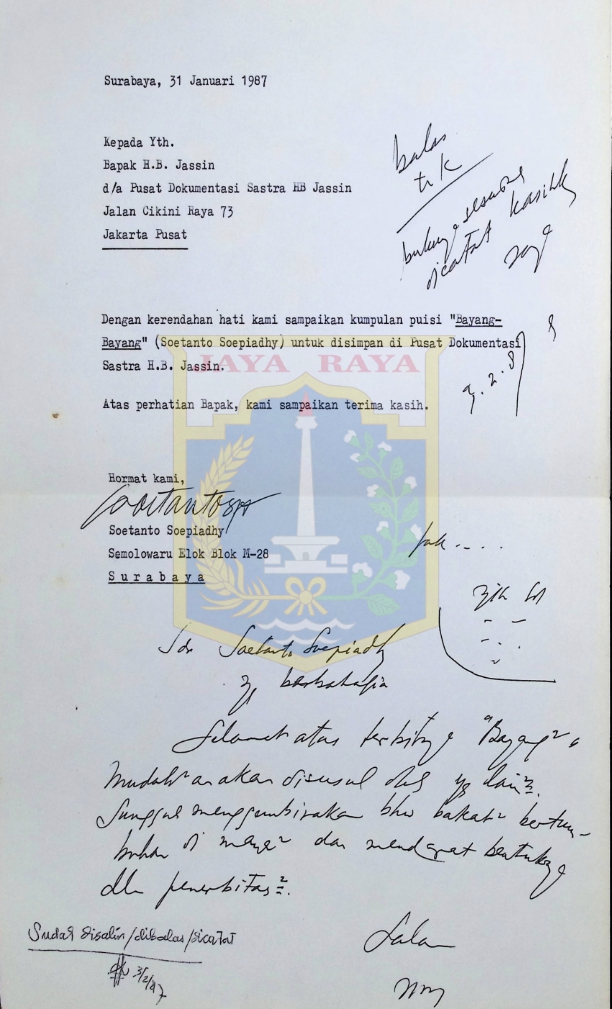 Surabaya, 31 Januari 1987
Kepada Yth.
Bapak H.B. Jassin
d/a Pusat Dokumentasi Sastra HB Jassin
Jalan Cikini Raya 73
Jakarta Pusat
balas
trk
bukunya sesudah
dicatat kasihk
saya
Dengan kerendahan hati kami sampaikan kumpulan puisi "Bayang-
Bayang" (Soetanto Soepiadhy) untuk disimpan di Pusat Dokumentasi
Sastra H.B. Jassin.
3.2.87
JAYA RAYA
Atas perhatian Bapak, kami sampaikan terima kasih.
Hormat kami,
Soetanto Soepiadhy
Semolowaru Elok Blok M-28
Surabaya
Jak ....
Sdr Soetanto Soepiadhy
yg berbahagia
Selamat atas terbitnya "Bayang²"
Mudah²an akan disusul oleh yg lain².
Sungguh menggembirakan bhw bakat² bertum-
buhan di mana² dan mendapat bentuknya
dlm penerbitan².
Salam
Sudah disalin/dibalas/dicatat
3/2/87